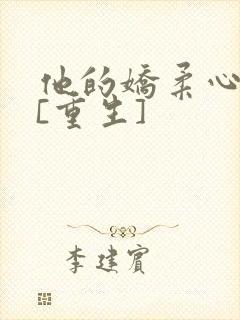 他的嬌柔心
[重生]
李建賓